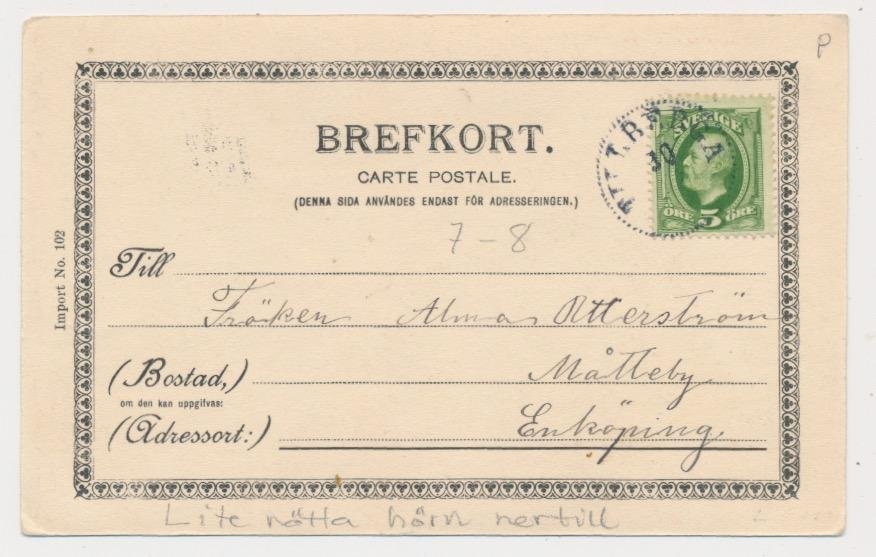 P
BREFKORT.
CARTE POSTALE.
(DENNA SIDA ANVÄNDES ENDAST FÖR ADRESSERINGEN.)
SVERIGE
10
ÖRE 5 ÖRE
7-8
Import No. 102
Till
Fröken Alma Otterström
(Bostad,)
Måtteby
om den kan uppgifvas:
(Adressort:)
Enköping
Lite nötta hörn nertill